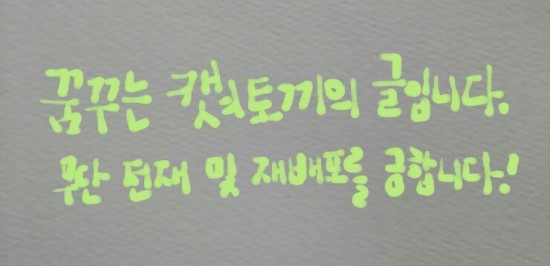 꿈꾸는 캣츠토끼의 글입니다.
무단 전재 및 재배포를 금합니다!